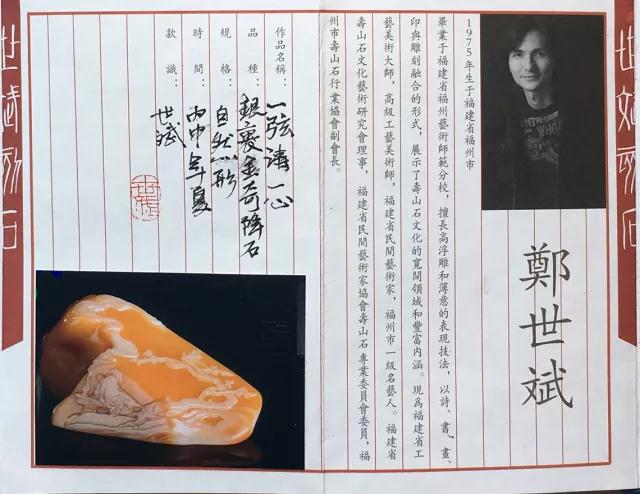 鄭世斌
1975年生于福建省福州市
畢業于福建省福州藝術師範分校，擅長高浮雕和薄意的表現技法，以詩、書、畫、
印與雕刻融合的形式，展示了壽山石文化的寬闊領域和豐富内涵。現爲福建省工
藝美術大師，高級工藝美術師，福建省民間藝術家，福州市一級名藝人。福建省
壽山石文化藝術研究會理事，福建省民間藝術家協會壽山石專業委員會委員，福
州市壽山石行業協會副會長。
作品名稱：一弦清一心
品種：銀裹金奇降石
規格：自然形
時間：丙申年夏
款識：世斌
世斌刻石
世斌刻石